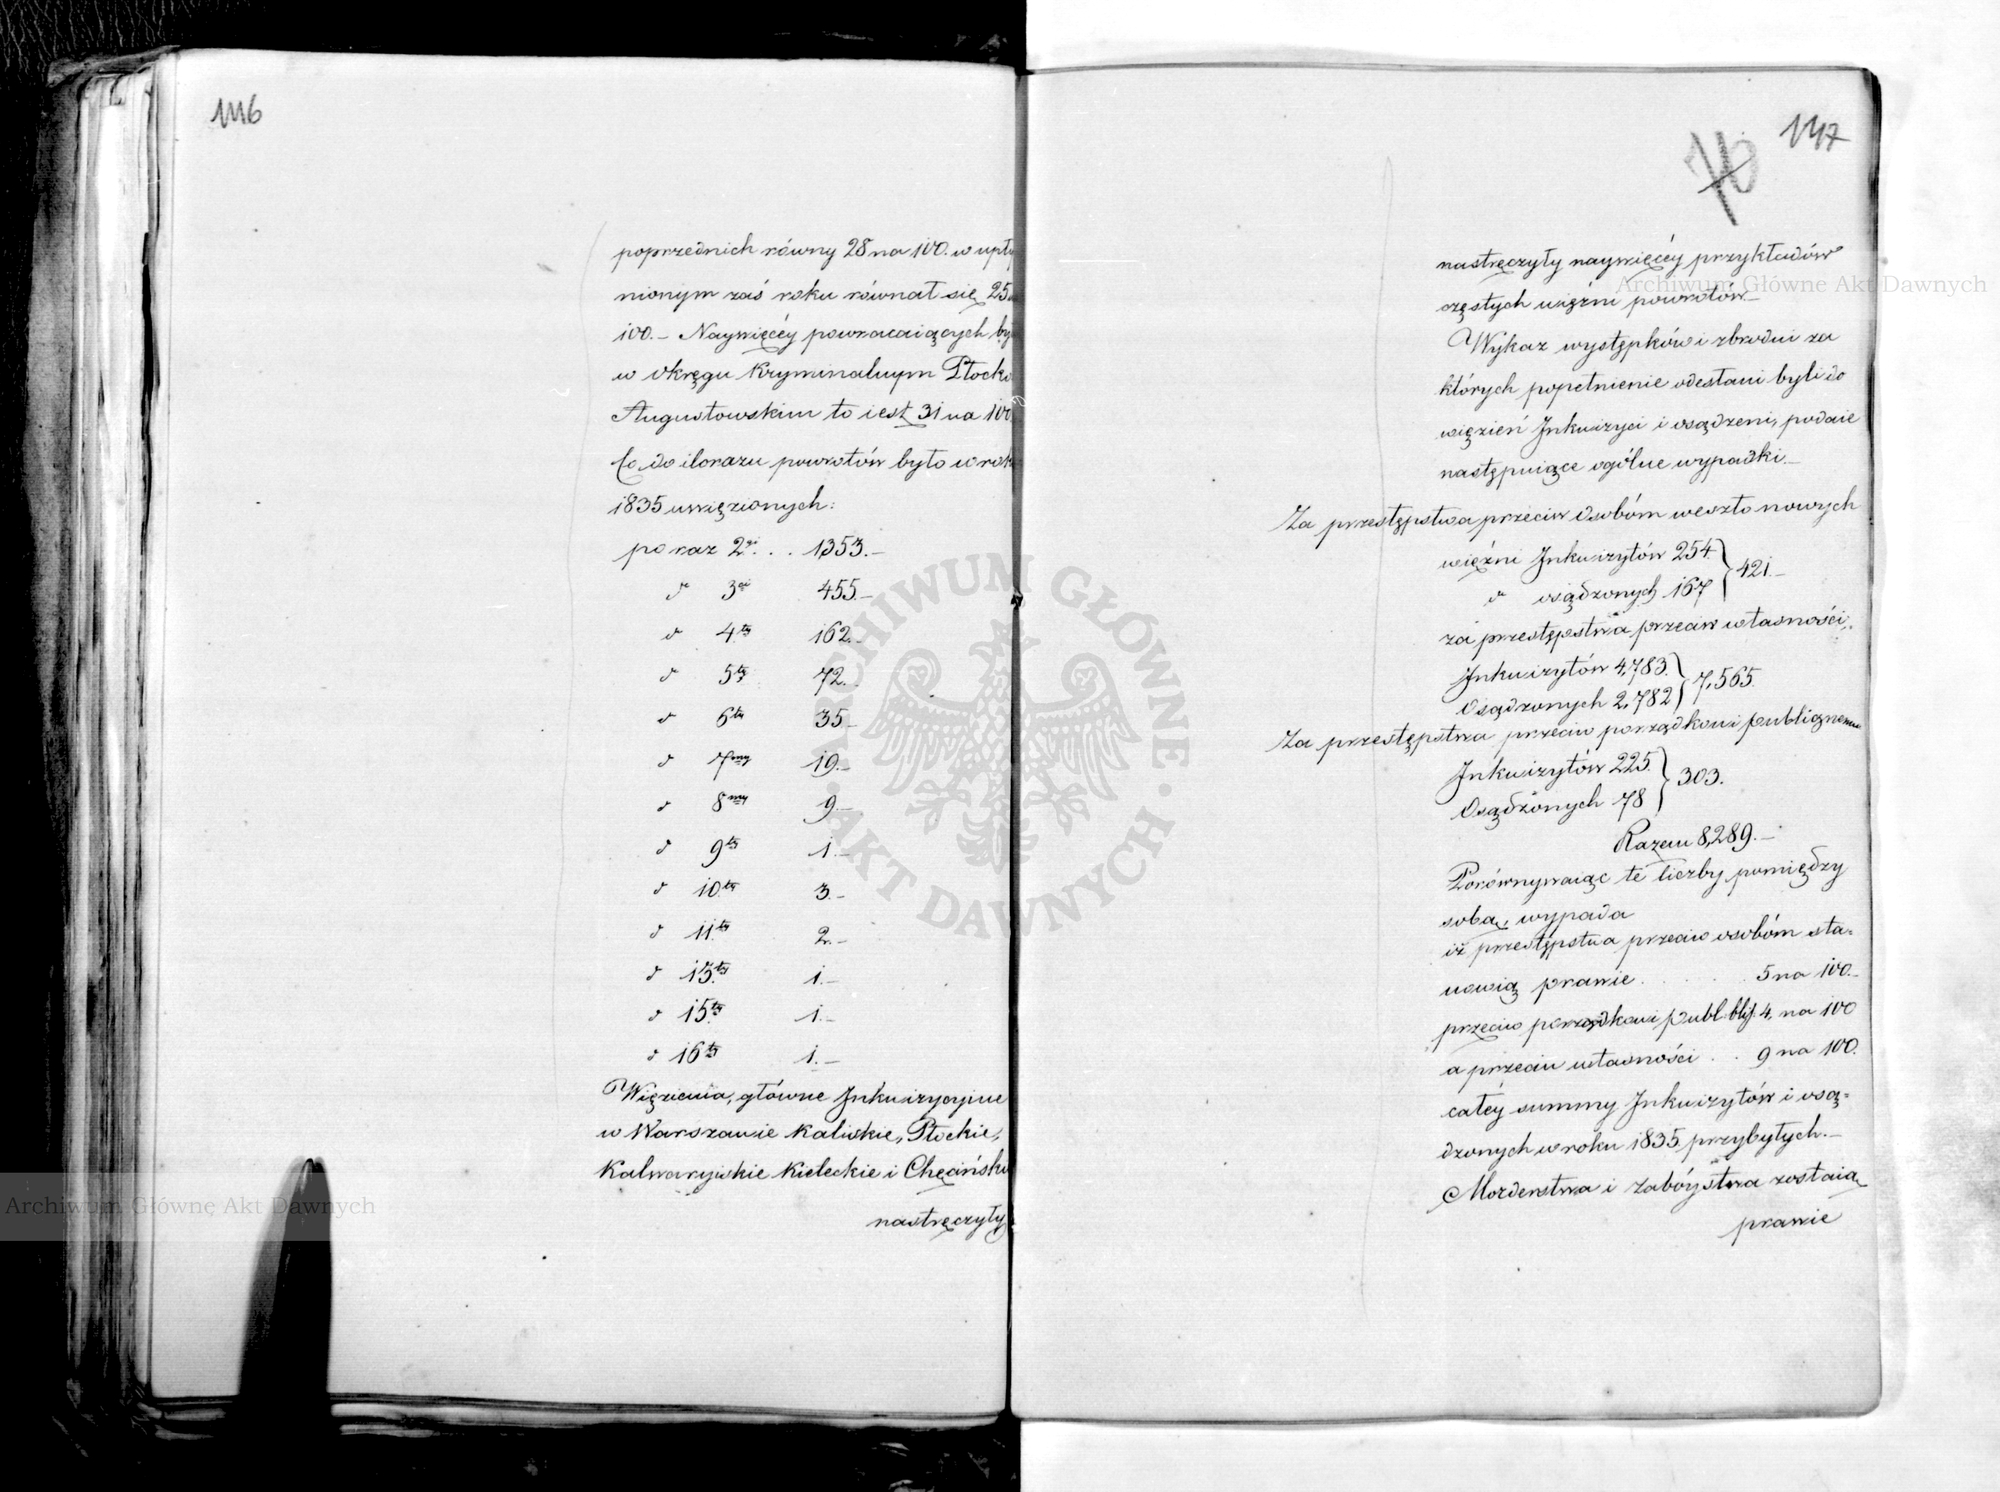 146
poprzednich równy 28 na 100. w upły
nionym zaś roku równał się 25
100.– Naywięcéy powracaiących by
w Okręgu Kryminalnym Płocko
Augustowskim to iest 31 na 100
Co do ilorazu powrotów było w rok
1835 uwięzionych:
po raz 2gi . . 1353.–
d 3ci 455.–
d 4ty 162.–
d 5ty 72.–
d 6ty 35–
d 7my 19.–
d 8my 9.–
d 9ty 1.–
d 10ty 3.–
d 11ty 2.–
d 13ty 1.–
d 15ty 1.–
d 16ty 1.–
Więzienia, główne Inkwizycyine
w Warszawie Kaliskie, Płockie,
Kalwaryiskie Kieleckie i Chęcińsk
nastręczyły
147
76
nastręczyły naywięcéy przykładów
częstych więźni powrotów–
Wykaz występków i zbrodni za
których popełnienie odesłani byli do
więzień Inkwizyci i osądzeni, podaie
następuiące ogólne wypadki.–
Za przestępstwa przeciw Osobóm weszło nowych
więźni Inkwizytów 254 } 421.–
d osądzonych 167
za przestępstwa przeciw własności,
Inkwizytów 4,783. } 7,565.
Osądzonych 2,782
Za przestępstwa przeciw porządkowi publicznemu
Inkwizytów 225. } 303.
Osądzonych 78
Razem 8,289.–
Porównywaiąc te liczby pomiędzy
sobą, wypada
iż przestępstwa przeciw osobóm sta=
nowią prawie . . . . 5 na 100.–
przeciw porządkowi publ: 4, na 100
a przeciw własności . . 9 na 100.
całéy summy Inkwizytów i osą=
dzonych w roku 1835 przybyłych.–
Morderstwa i Zabóystwa zostaią
prawie
Archiwum Główne Akt Dawnych
Archiwum Główne Akt Dawnych
ARCHIWUM GŁÓWNE · AKT DAWNYCH ·